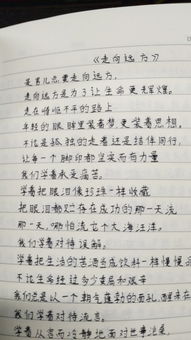 《走向远方》
是男儿总要走向远方,
走向远方是为了让生命更辉煌。
走在崎岖不平的路上
年轻的眼眸里装着梦更装着思想。
不论是孤独的走着还是结伴同行,
让每一个脚印都坚实而有力量
我们学着承受痛苦。
学着把眼泪像珍珠一样收藏
把眼泪都贮存在成功的那一天流
那一天,哪怕流它个大海汪洋。
我们学着对待误解。
学着把生活的苦酒当成饮料一样慢慢品
不论生命经过多少委屈和艰辛
我们总是以一个朝气蓬勃的面孔,醒来在
我们学着对待流言。
学着从容而冷静地面对世事沧桑